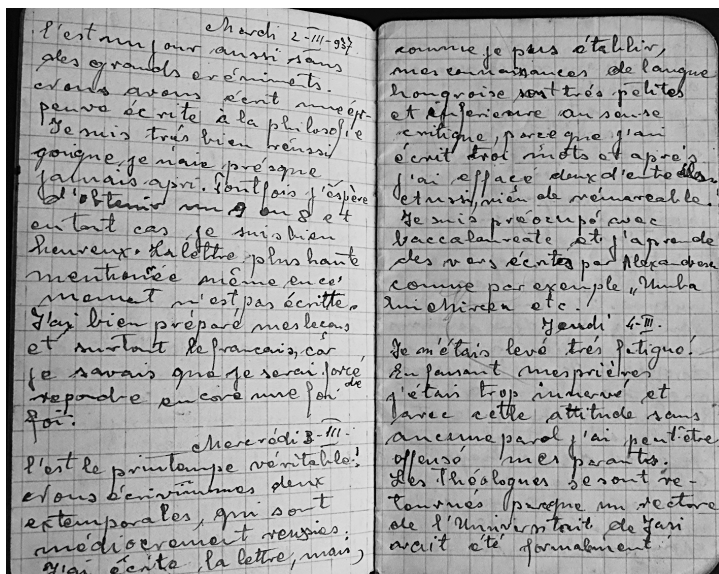 Mardi 2-III-937.
C'est un jour aussi sans
des grands evéniments.
Nous avons écrit une épr-
peuve écrite à la philosofie
Je suis trés bien reussi
qoique je n'aie présque
jamais apri. Toutfois j'éspère
d'obtenir un 9 ou 8 et
en tout cas je suis bien
heureux. La lettre plus haute
mentionée même en ce
moment n'est pas écritte.
J'ai bien préparé mes leçons
et surtout le français, car
je savais que je serai forcé
de
repondre encore une foi.
foi.
Mercrédi 3-III-
C'est le printempe véritable!
Nous écrivimmes deux
extemporales, qui sont
médiocrement reusies.
J'ai écrite la lettre, mais,
comme je puis établir,
mes connaissances de langue
hongroise sont trés petites
et inferieure au sense
critique, parce que j'ai
écrit troi mots et aprés
j'ai effacé deux d'entre
et ussi, rien de rémarcable.
Je suis préocupé avec
baccalaureate et j'aprende
des vers écrites par Alexandrescu
comme par exemple „Umba
lui Mircea etc.
Jeudi 4-III.
Je m'étais levé trés fatigué!
En faisant mes prières
j'étais trop innervé et
avec cette attitude sans
aucune parol j'ai peut-être
offensé mes parants.
Les Théologues se sont re-
tournés parque un rectore
de l'Universitait de Jasi
avait été formalment